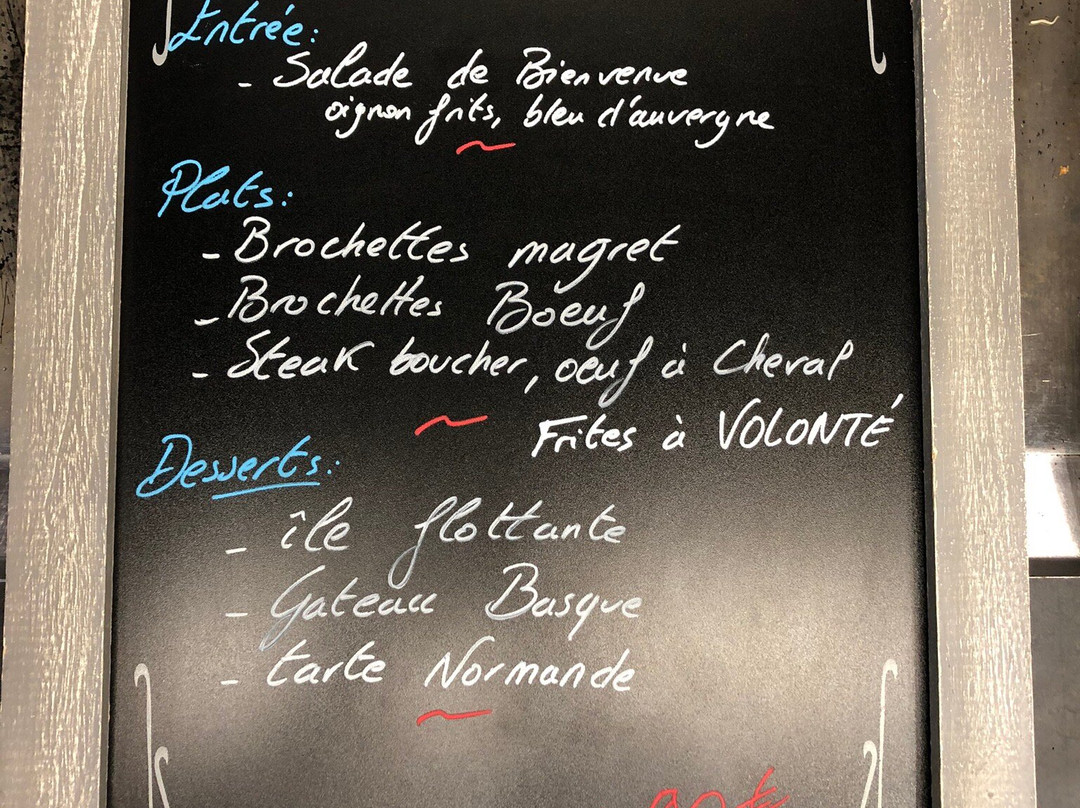 Entrée:
- Salade de Bienvenue
oignon frits, bleu d'auvergne
Plats:
- Brochettes magret
- Brochettes Boeuf
- Steak boucher, oeuf à Cheval
Frites à VOLONTÉ
Desserts:
- île flottante
- Gateau Basque
- tarte Normande